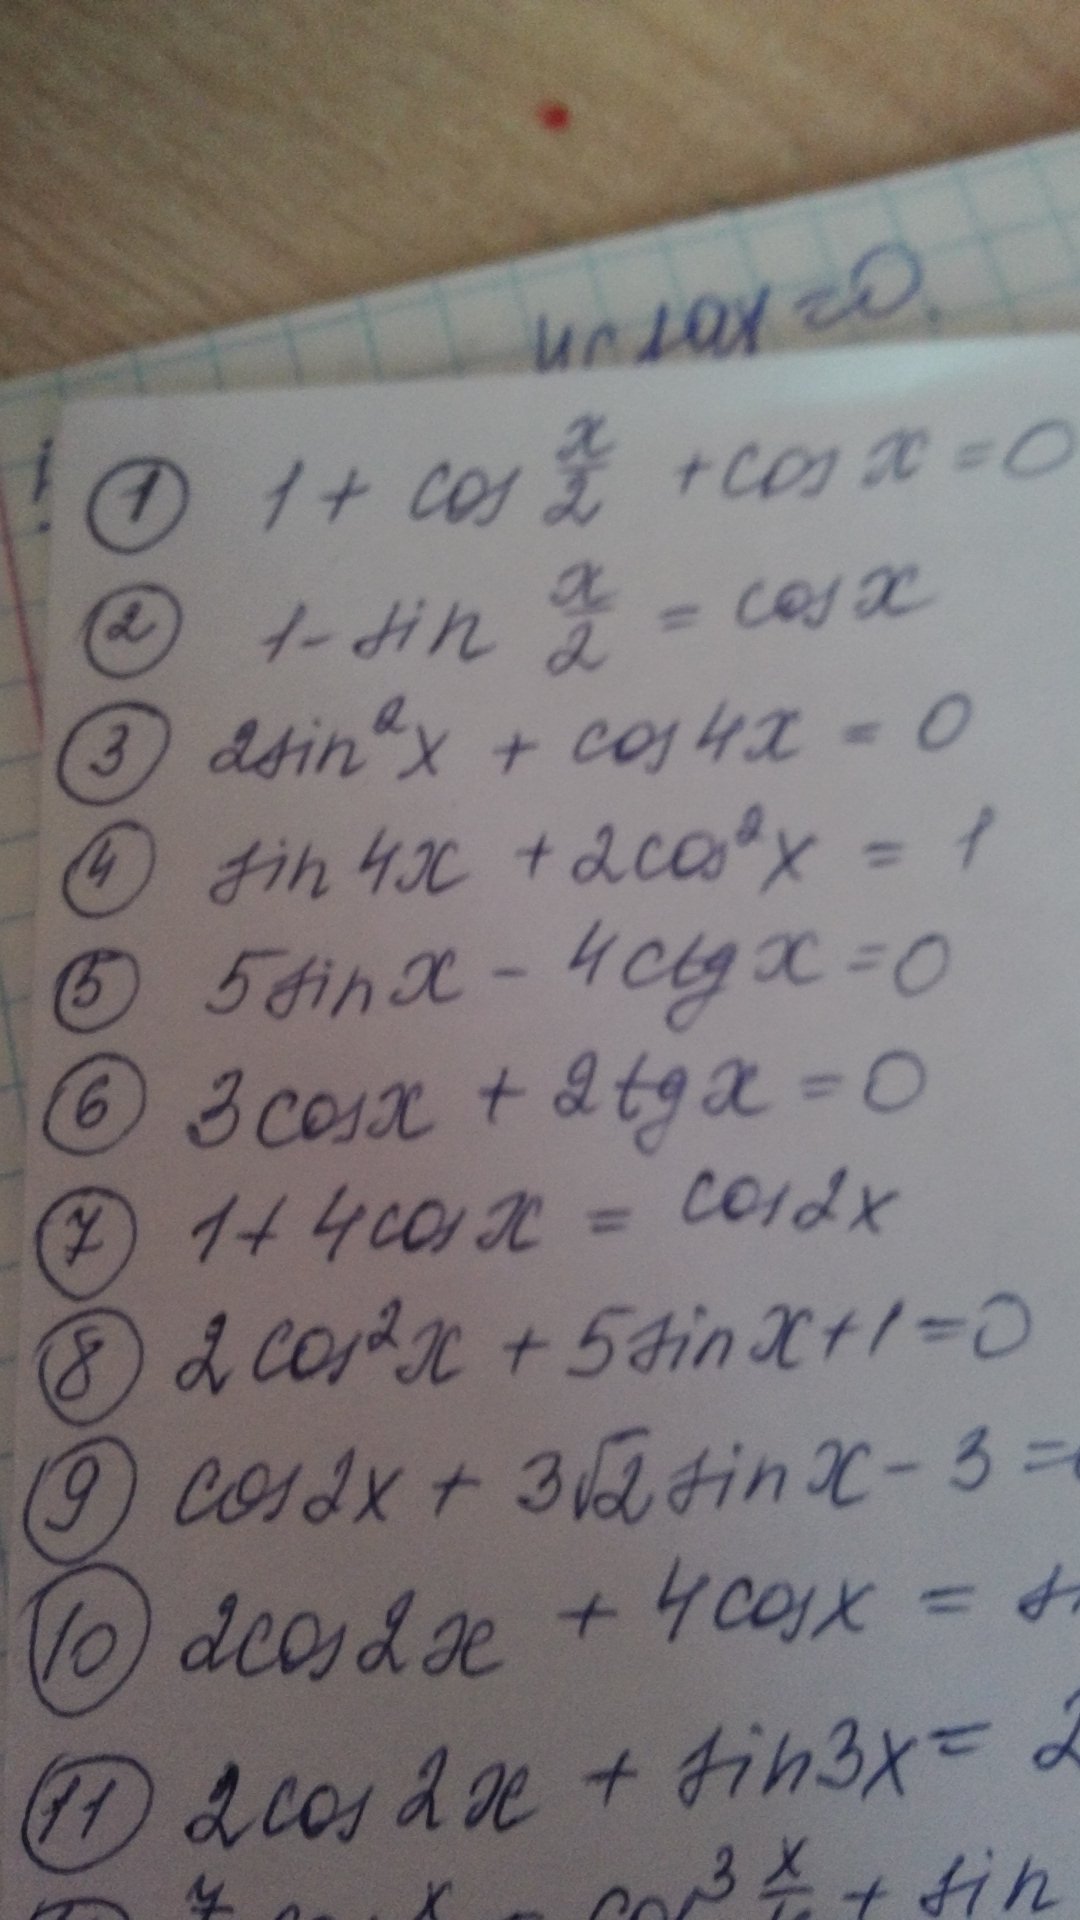 =0
① 1 + cos x/2 + cos x = 0
② 1 - sin x/2 = cos x
③ 2sin²x + cos4x = 0
④ sin4x + 2cos²x = 1
⑤ 5sinx - 4ctgx = 0
⑥ 3cosx + 2tgx = 0
⑦ 1 + 4cosx = cos2x
⑧ 2cos²x + 5sinx + 1 = 0
⑨ cos2x + 3√2sinx - 3 =
⑩ 2cos2x + 4cosx =
⑪ 2cos2x + sin3x = 2
cos³ x + sin